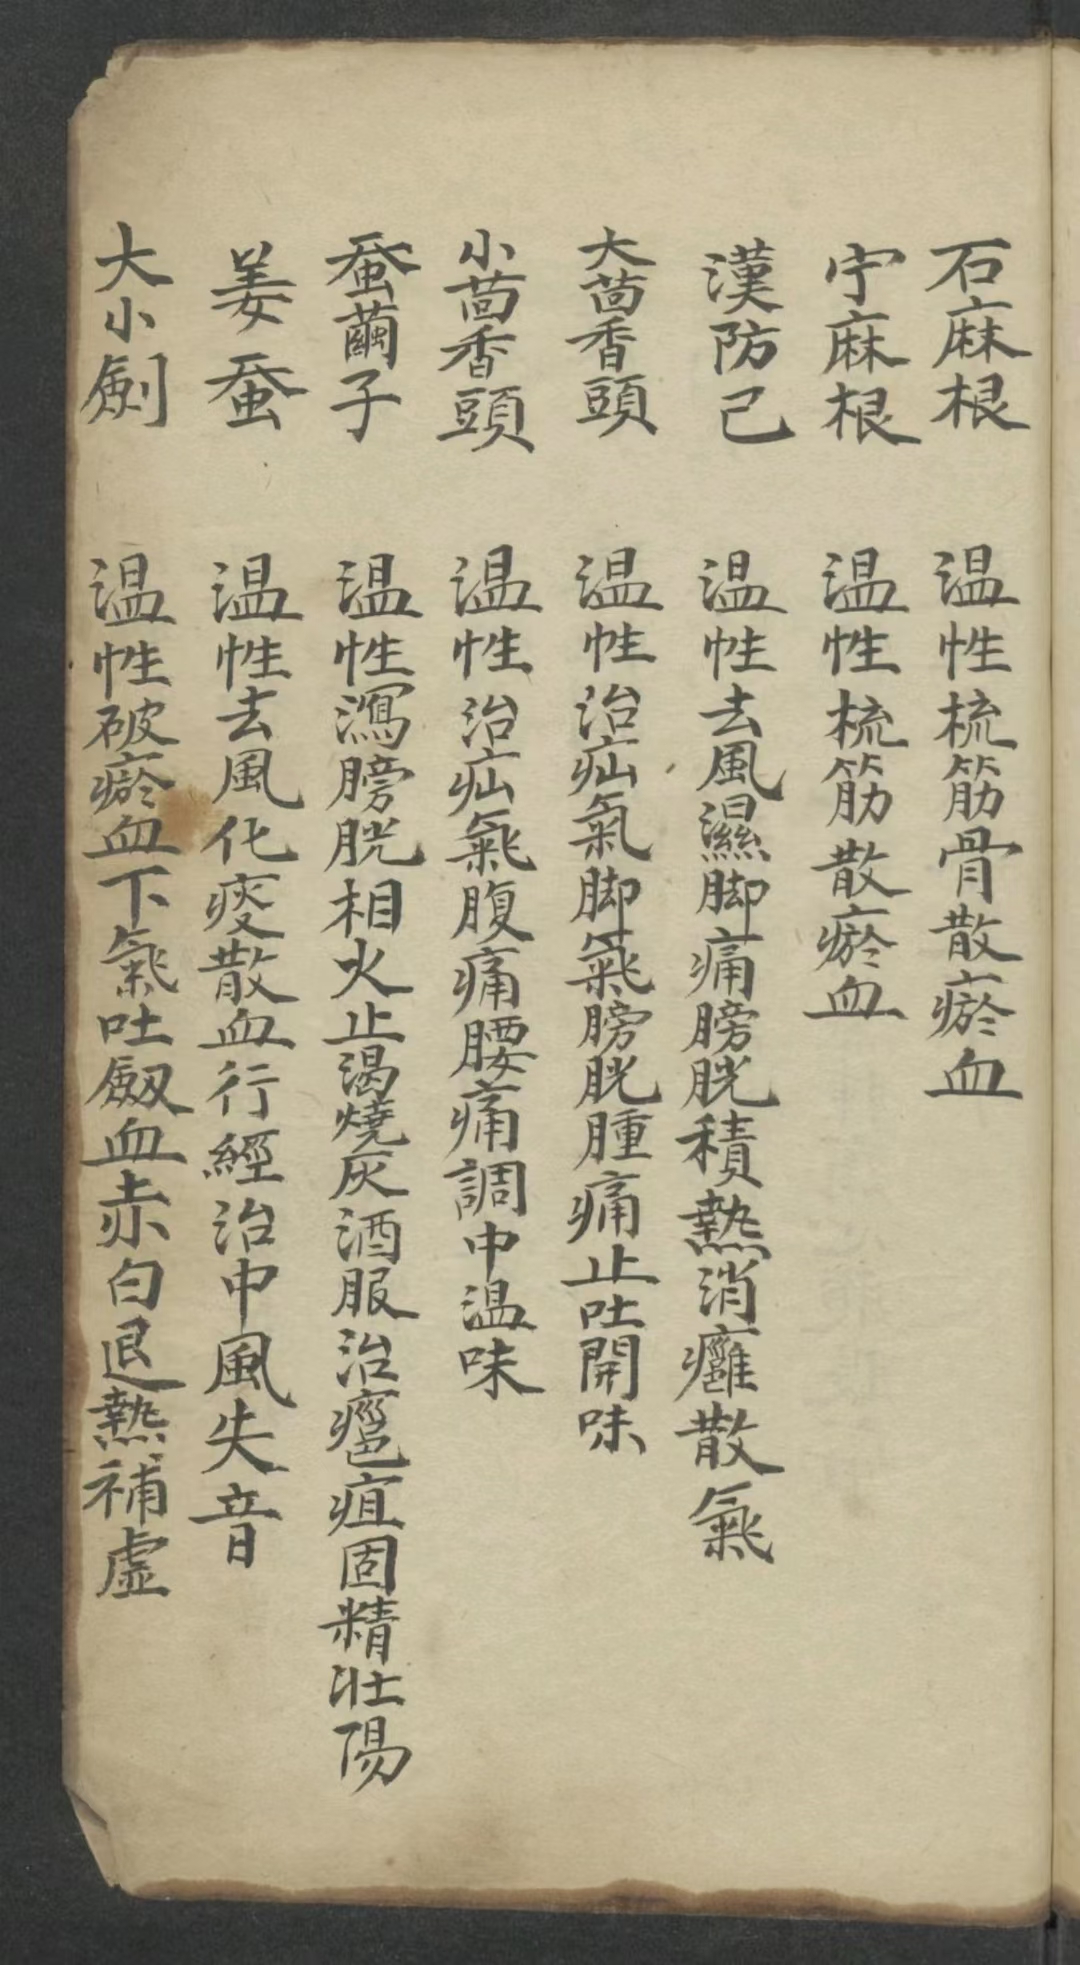 石麻根 温性梳筋骨散瘀血
宁麻根 温性梳筋散瘀血
漢防己 温性去風濕脚痛膀胱積熱消癰散氣
大茴香頭 温性治疝氣脚氣膀胱腫痛止吐開味
小茴香頭 温性治疝氣腹痛腰痛調中温味
蚕繭子 温性瀉膀胱相火止渴燒灰酒服治癰疽固精壯陽
姜蚕 温性去風化痰散血行經治中風失音
大小劍 温性破瘀血下氣吐衂血赤白退熱補虛